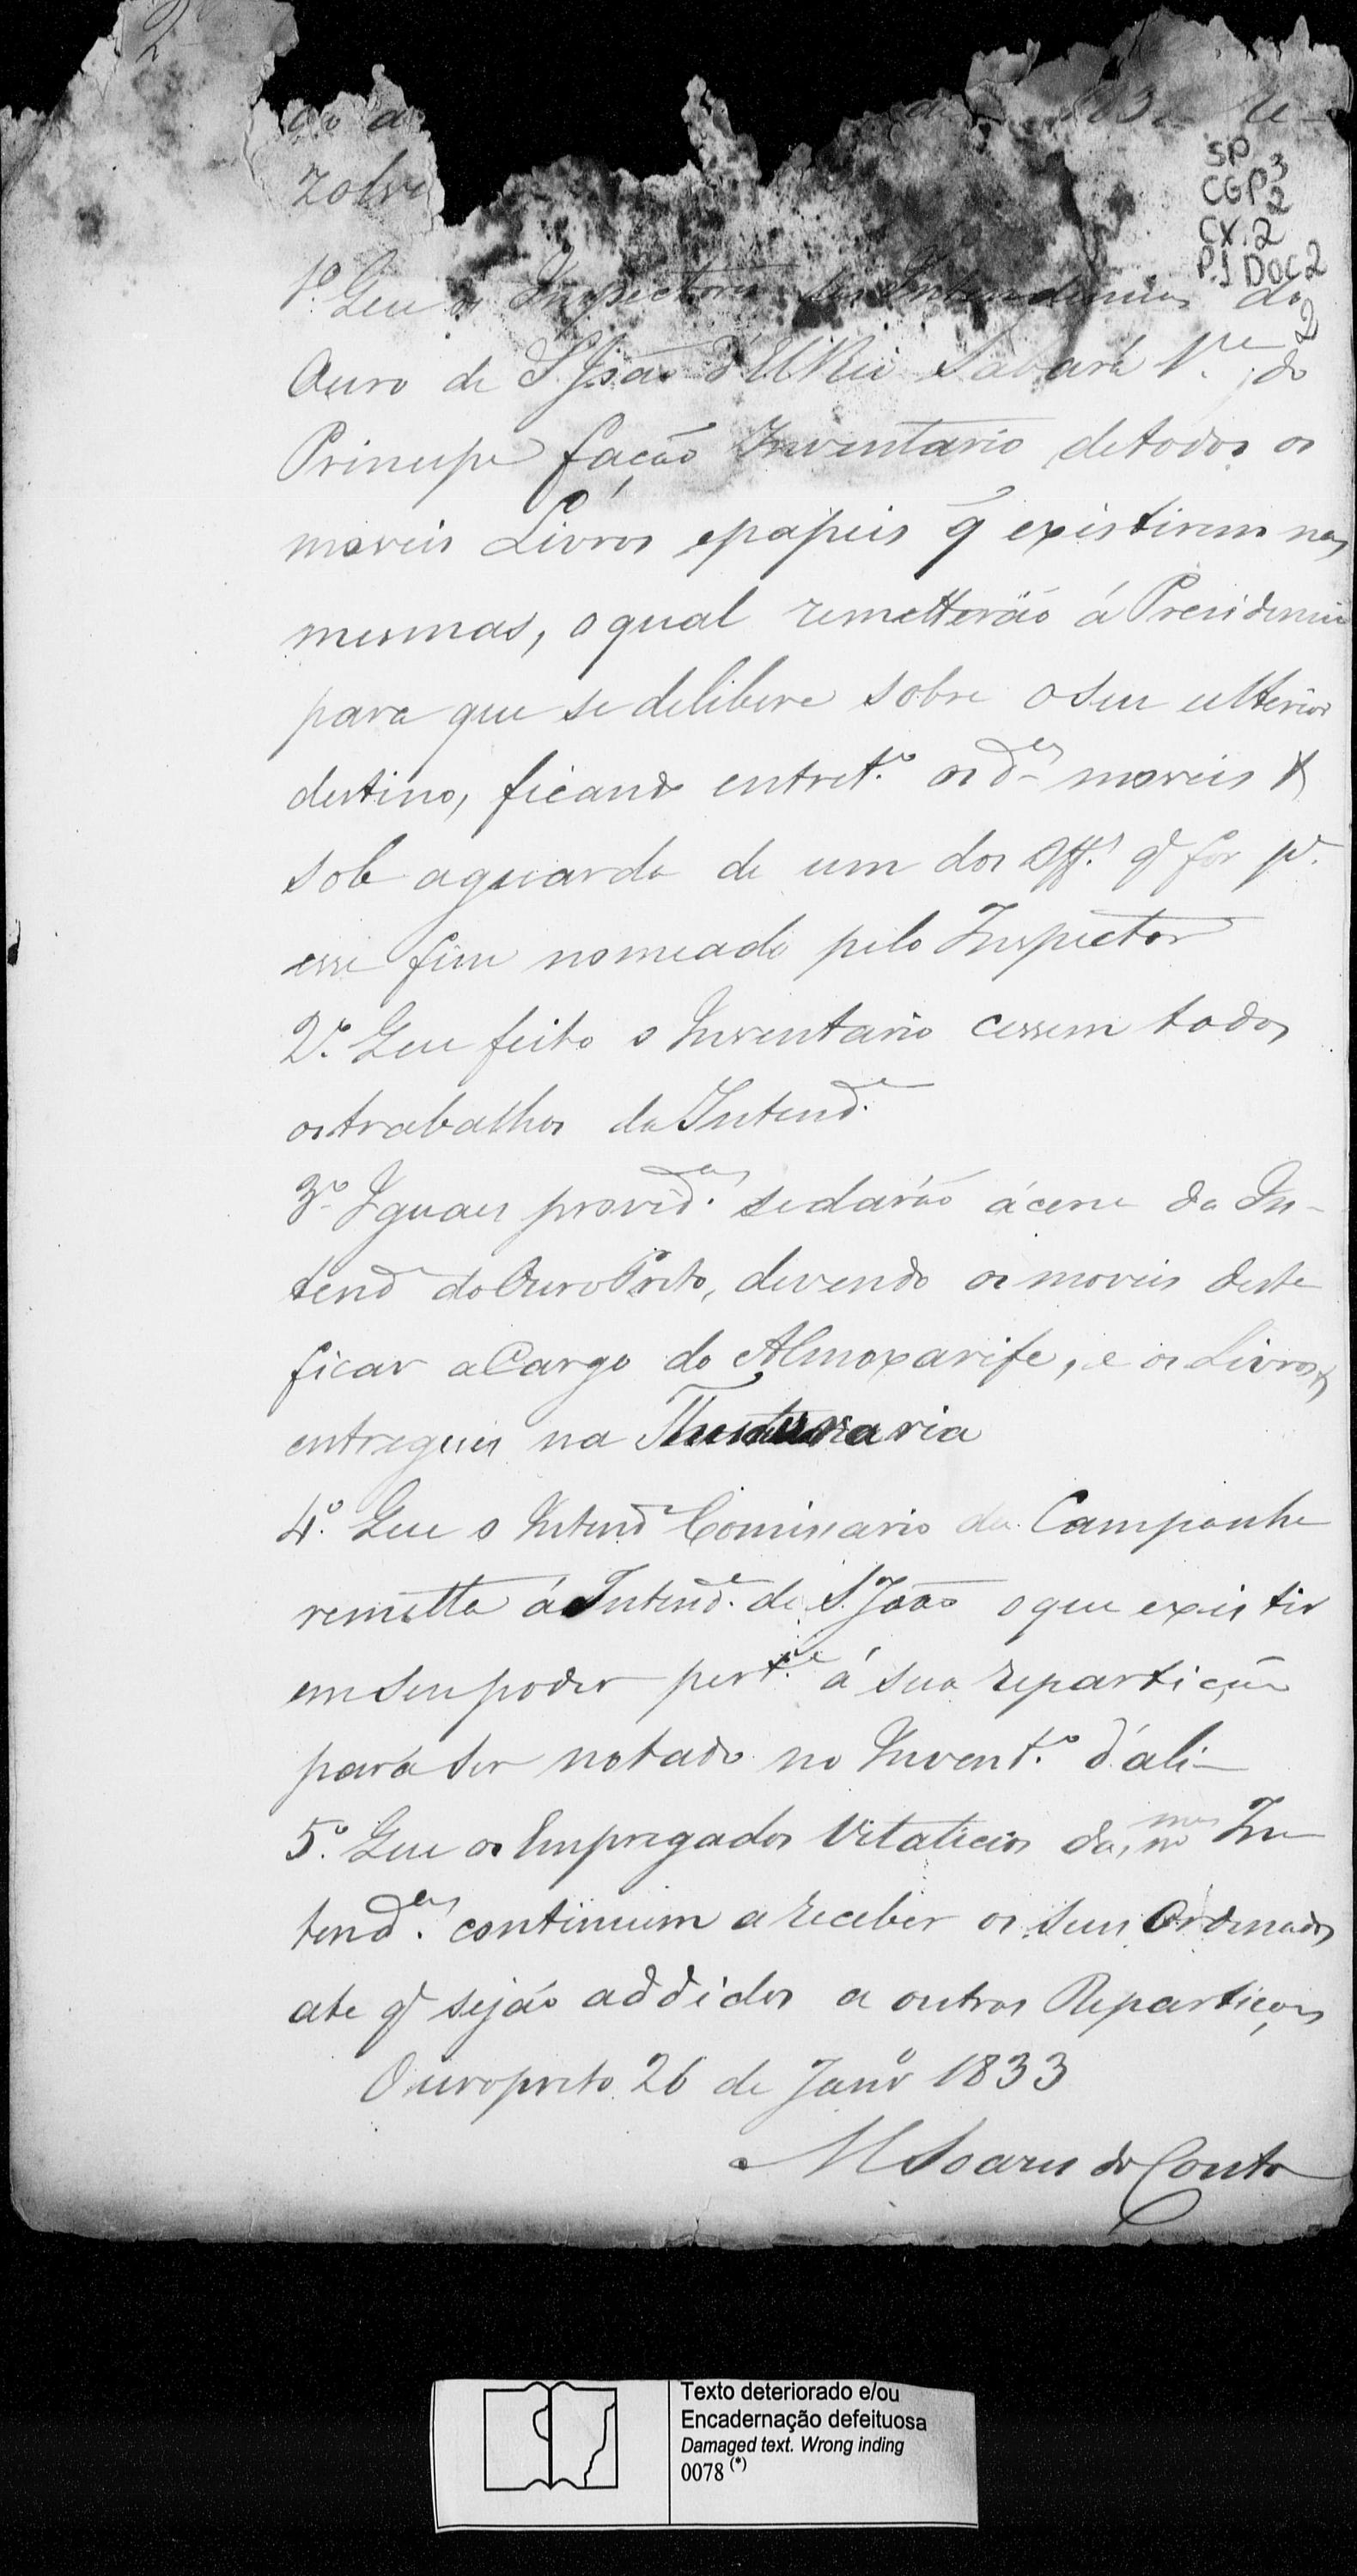 2
do a de 183 Re-
zolve
SP
CGP3
2
CX. 2
PJ DOC 2
2
1º. Que os Inspectores das Intendencias do
Ouro de S. João d'ElRei Sabará Vª do
Principe fação Inventario detodos os
moveis Livros epapeis q̃ existirem nas
mesmas, oqual remetterão á Presidencia
para que sedelibere sobre oseu ulterior
destino, ficando entret.º os dºˢ moveis &
sob aguarda de um dos Off.ˢ q' for p.ª
esse fim nomeado pelo Inspector
2º. Que feito o Inventario cessem todos
ostrabalhos da Intend.ª
3º. Iguaes provid.ᵃˢ sedarão ácerca da In-
tend.ª doOuroPreto, devendo os moveis desta
ficar aCargo do Almoxarife, e os Livros &
entregues na Thesouraria
4º. Que o Intend.ᵉ Comissario da Campanha
remetta á Intend.ª de S. João oque existir
emseupoder pert.ᵉ á sua repartição
paraser notado no Invent.º d'ali-
5º. Que os Empregados Vitalicios das mᵐᵃˢ In-
tend.ᵃˢ continuem areceber os seus Ordenados
ate q' sejão addidos a outras Repartições
Ouropreto 26 de Janrº 1833
M Soares do Couto
Texto deteriorado e/ou
Encadernação defeituosa
Damaged text. Wrong inding
0078 (*)